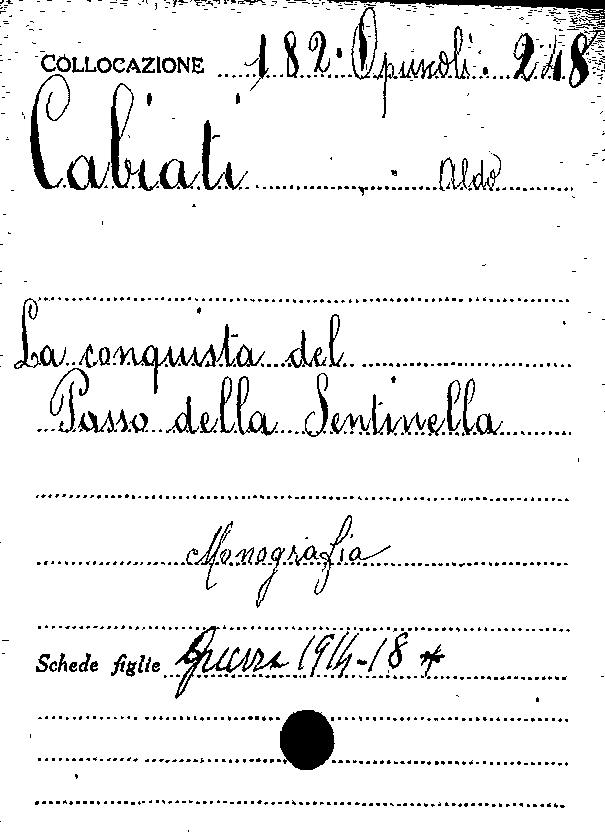 COLLOCAZIONE 182. Opuscoli. 248
Cabiati Aldo
La conquista del
Passo della Sentinella
Monografia
Schede figlie Guerra 1914-18 *